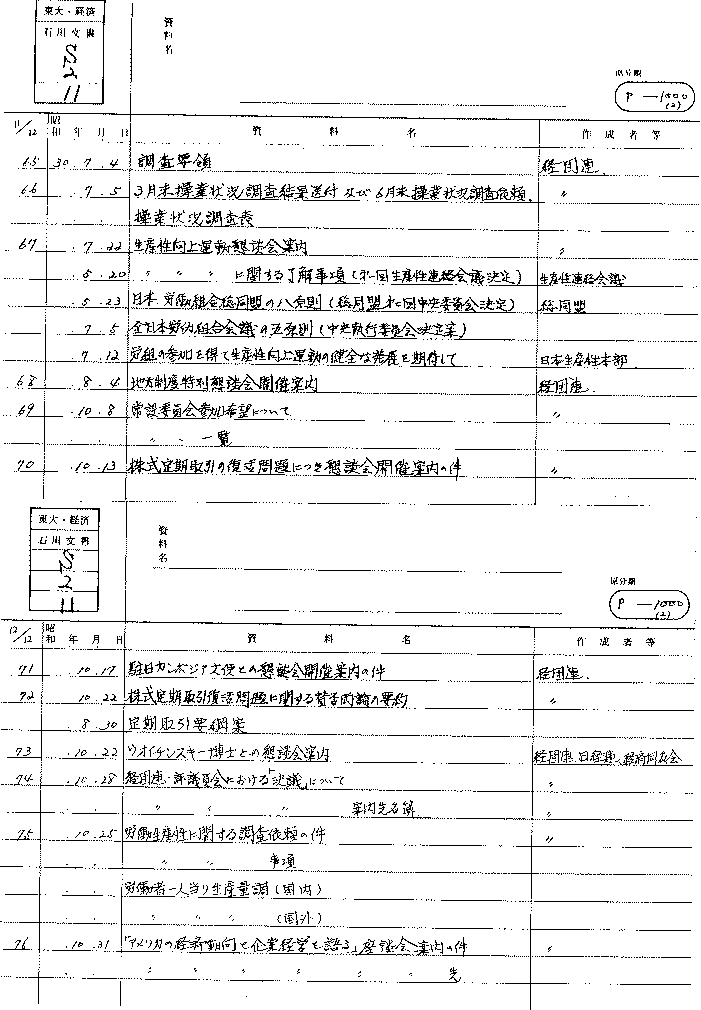 東大・経済
石川文書
S
2
11
資料名
原分類
P — 1000
(2)
11/12 昭和 年 月 日 資 料 名 作 成 者 等
65 30.7.4 調査要領 経団連
66 .7.5 3月末操業状況調査結果送付及び6月末操業状況調査依頼 〃
操業状況調査表
67 .7.22 生産性向上運動懇談会案内 〃
.5.20 〃 〃 〃 に関する了解事項(第一回生産性連絡会議決定) 生産性連絡会議
.5.23 日本労働組合総同盟の八原則(総同盟第二回中央委員会決定) 総同盟
.7.5 全日本労働組合会議の五原則(中央執行委員会決定案)
.7.12 労組の参加を得て生産性向上運動の健全な発展を期待して 日本生産性本部
68 .8.4 地方制度特別懇談会開催案内 経団連
69 .10.8 常設委員会参加希望について 〃
〃 〃 一覧
70 .10.13 株式定期取引の復活問題につき懇談会開催案内の件 〃
東大・経済
石川文書
S
2
11
資料名
原分類
P — 1000
(2)
12/12 昭和 年 月 日 資 料 名 作 成 者 等
71 .10.17 駐日カンボジア大使との懇談会開催案内の件 経団連
72 .10.22 株式定期取引復活問題に関する賛否両論の要約 〃
.8.30 定期取引要綱案
73 .10.22 ウオイチンスキー博士との懇談会案内 経団連、日経連、経済同友会
74 .10.28 経団連・評議員会における「決議」について 〃
〃 〃 〃 案内先名簿 〃
75 .10.25 労働生産性に関する調査依頼の件 〃
〃 〃 事項
労働者一人当り生産量調(国内)
〃 〃 〃 (国外)
76 .10.31 「アメリカの経済動向と企業経営を語る」座談会案内の件 〃
〃 〃 〃 〃 〃 〃 〃 先